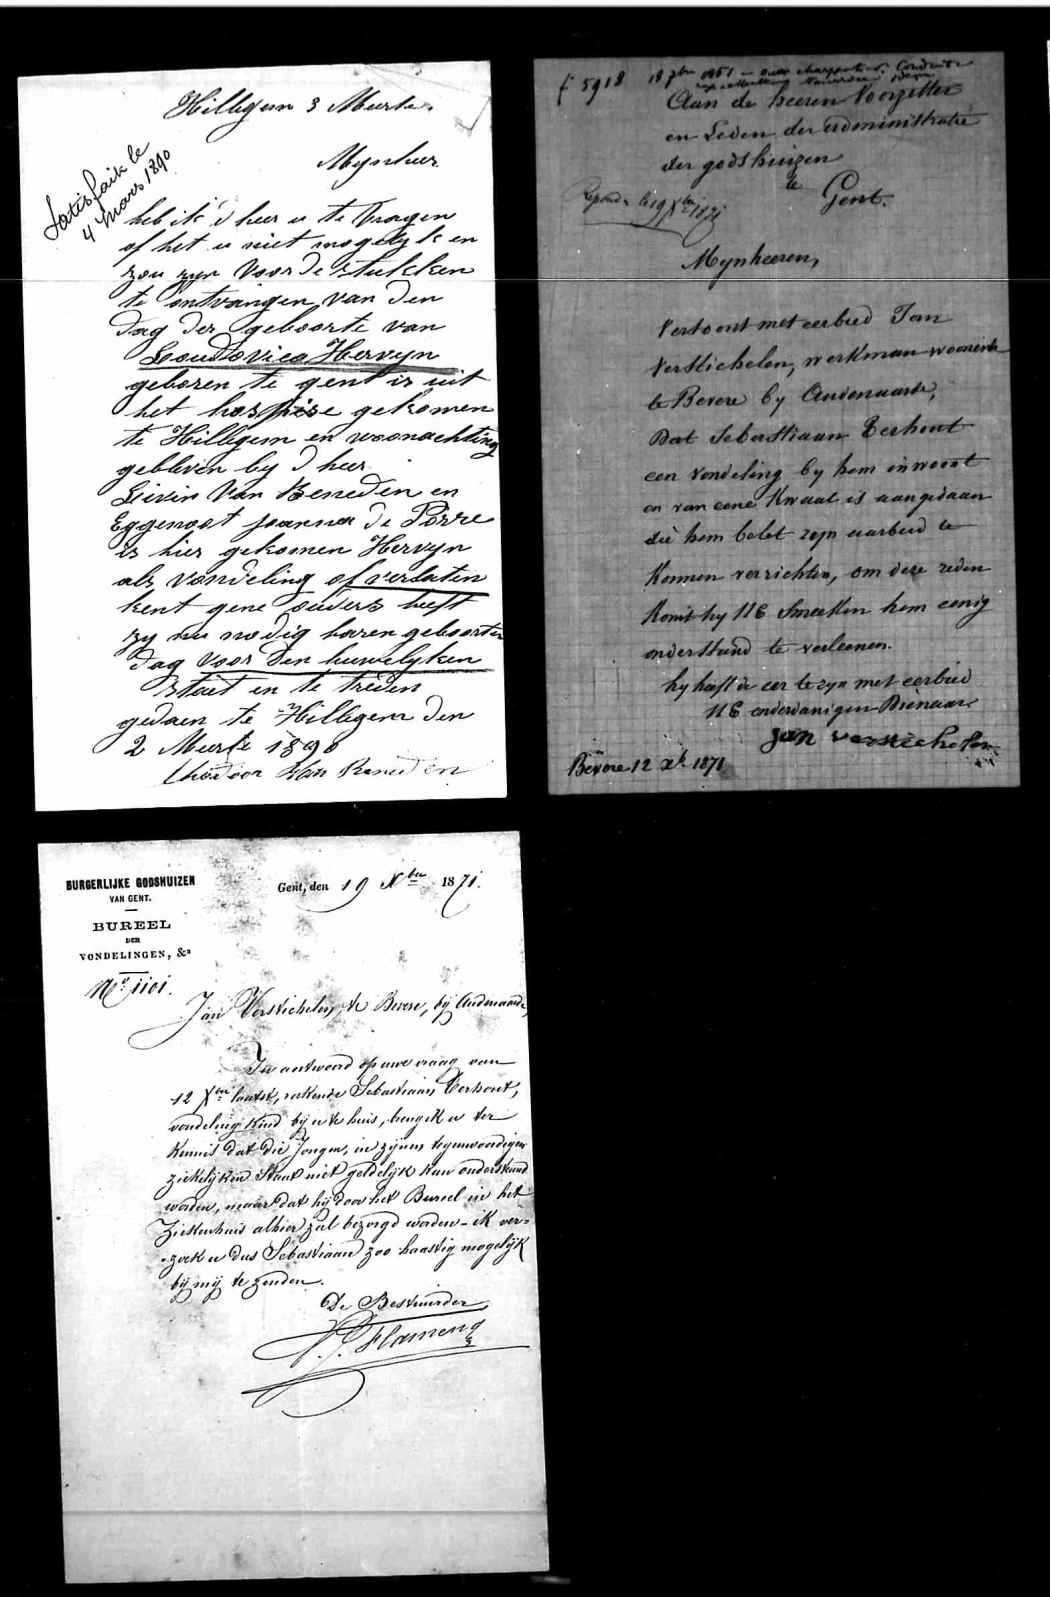 Hillegem 3 Meerte
Satisfait le
4 Mars 1890
Mynheer
heb ik d heer u te vragen
of het u niet mogelyk en
zou zyn voor de stukken
te ontvangen van den
dag der geboorte van
Loudovica Hervyn
geboren te gent is uit
het hospise gekomen
te Hillegem en woonachting
gebleven by d heer
Livin Van Beneden en
Eggenoot joanna de Porre
is hier gekomen Hervyn
als vondeling of verlaten
kent gene ouders heeft
zy nu nodig haren geboorte
dag voor den huwelyken
staet in te treden
gedaen te Hillegem den
2 Meerte 1890
Theodoor Van Beneden
f 5918 18 7bre 1851
Aan de heeren Voorzitter
en Leden der administratie
der godshuizen
te
Gent.
le 19 Xbre 1871
Mynheeren,
Vertoont met eerbied Jan
Verstichelen, werkman woonende
te Bevere by Audenaarde,
Dat Sebastiaan Terhout
een vondeling by hem inwoont
en van eene kwaal is aangedaan
die hem belet zyn aarbeid te
konnen verrichten, om deze reden
komt hy UE Smeeken hem eenig
onderstand te verleenen.
hy heeft de eer te zyn met eerbied
UE onderdanigen Dienaar
jan verstichelen
Bevere 12 Xbr 1871
BURGERLIJKE GODSHUIZEN
VAN GENT.
BUREEL
DER
VONDELINGEN, &a
Gent, den 19 Xber 1871.
No 1101.
Jan Verstichelen, te Bevere, bij Audenaarde,
In antwoord op uwe vraag van
12 Xber laatst, rakende Sebastiaan Terhout,
vondeling kind bij u te huis, breng ik u ter
kennis dat die Jongen, in zijnen tegenwoordigen
ziekelijken Staat niet geldelijk kan ondersteund
worden, maar dat hij door het Bureel in het
Ziekenhuis alhier zal bezorgd worden - ik ver=
zoek u dus Sebastiaan zoo haastig mogelijk
bij mij te zenden.
De Bestuurder
Flamenq